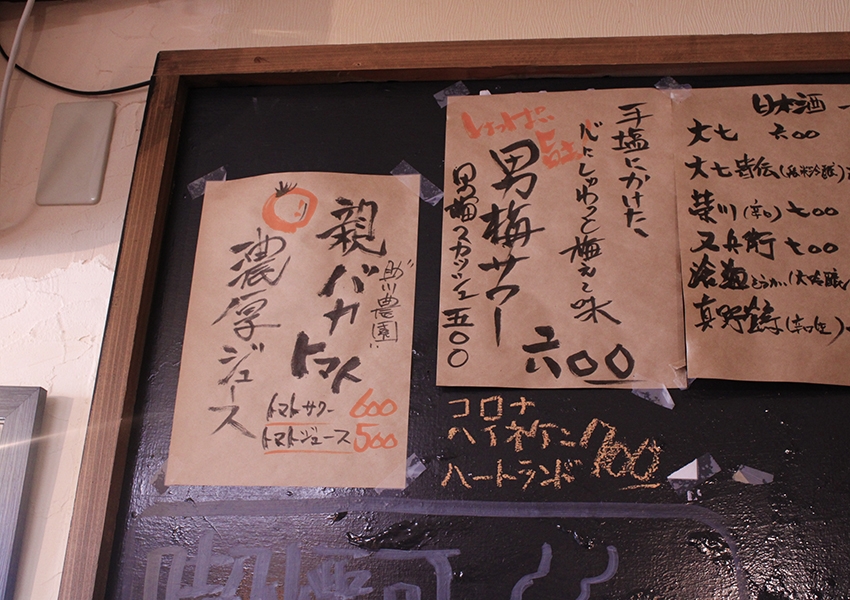 助川農園
親バカ
トマト
濃厚ジュース
トマトサワー 600
トマトジュース 500
手塩にかけた、
心にしゅわっと梅え〜味
しょっぱい
旨
男梅サワー
六〇〇
男梅スカッシュ 五〇〇
日本酒
大七 六〇〇
大七皆伝(純米吟醸)
榮川(辛口) 七〇〇
又兵衛 七〇〇
真野鶴
コロナ
ハイネケン 700
ハートランド